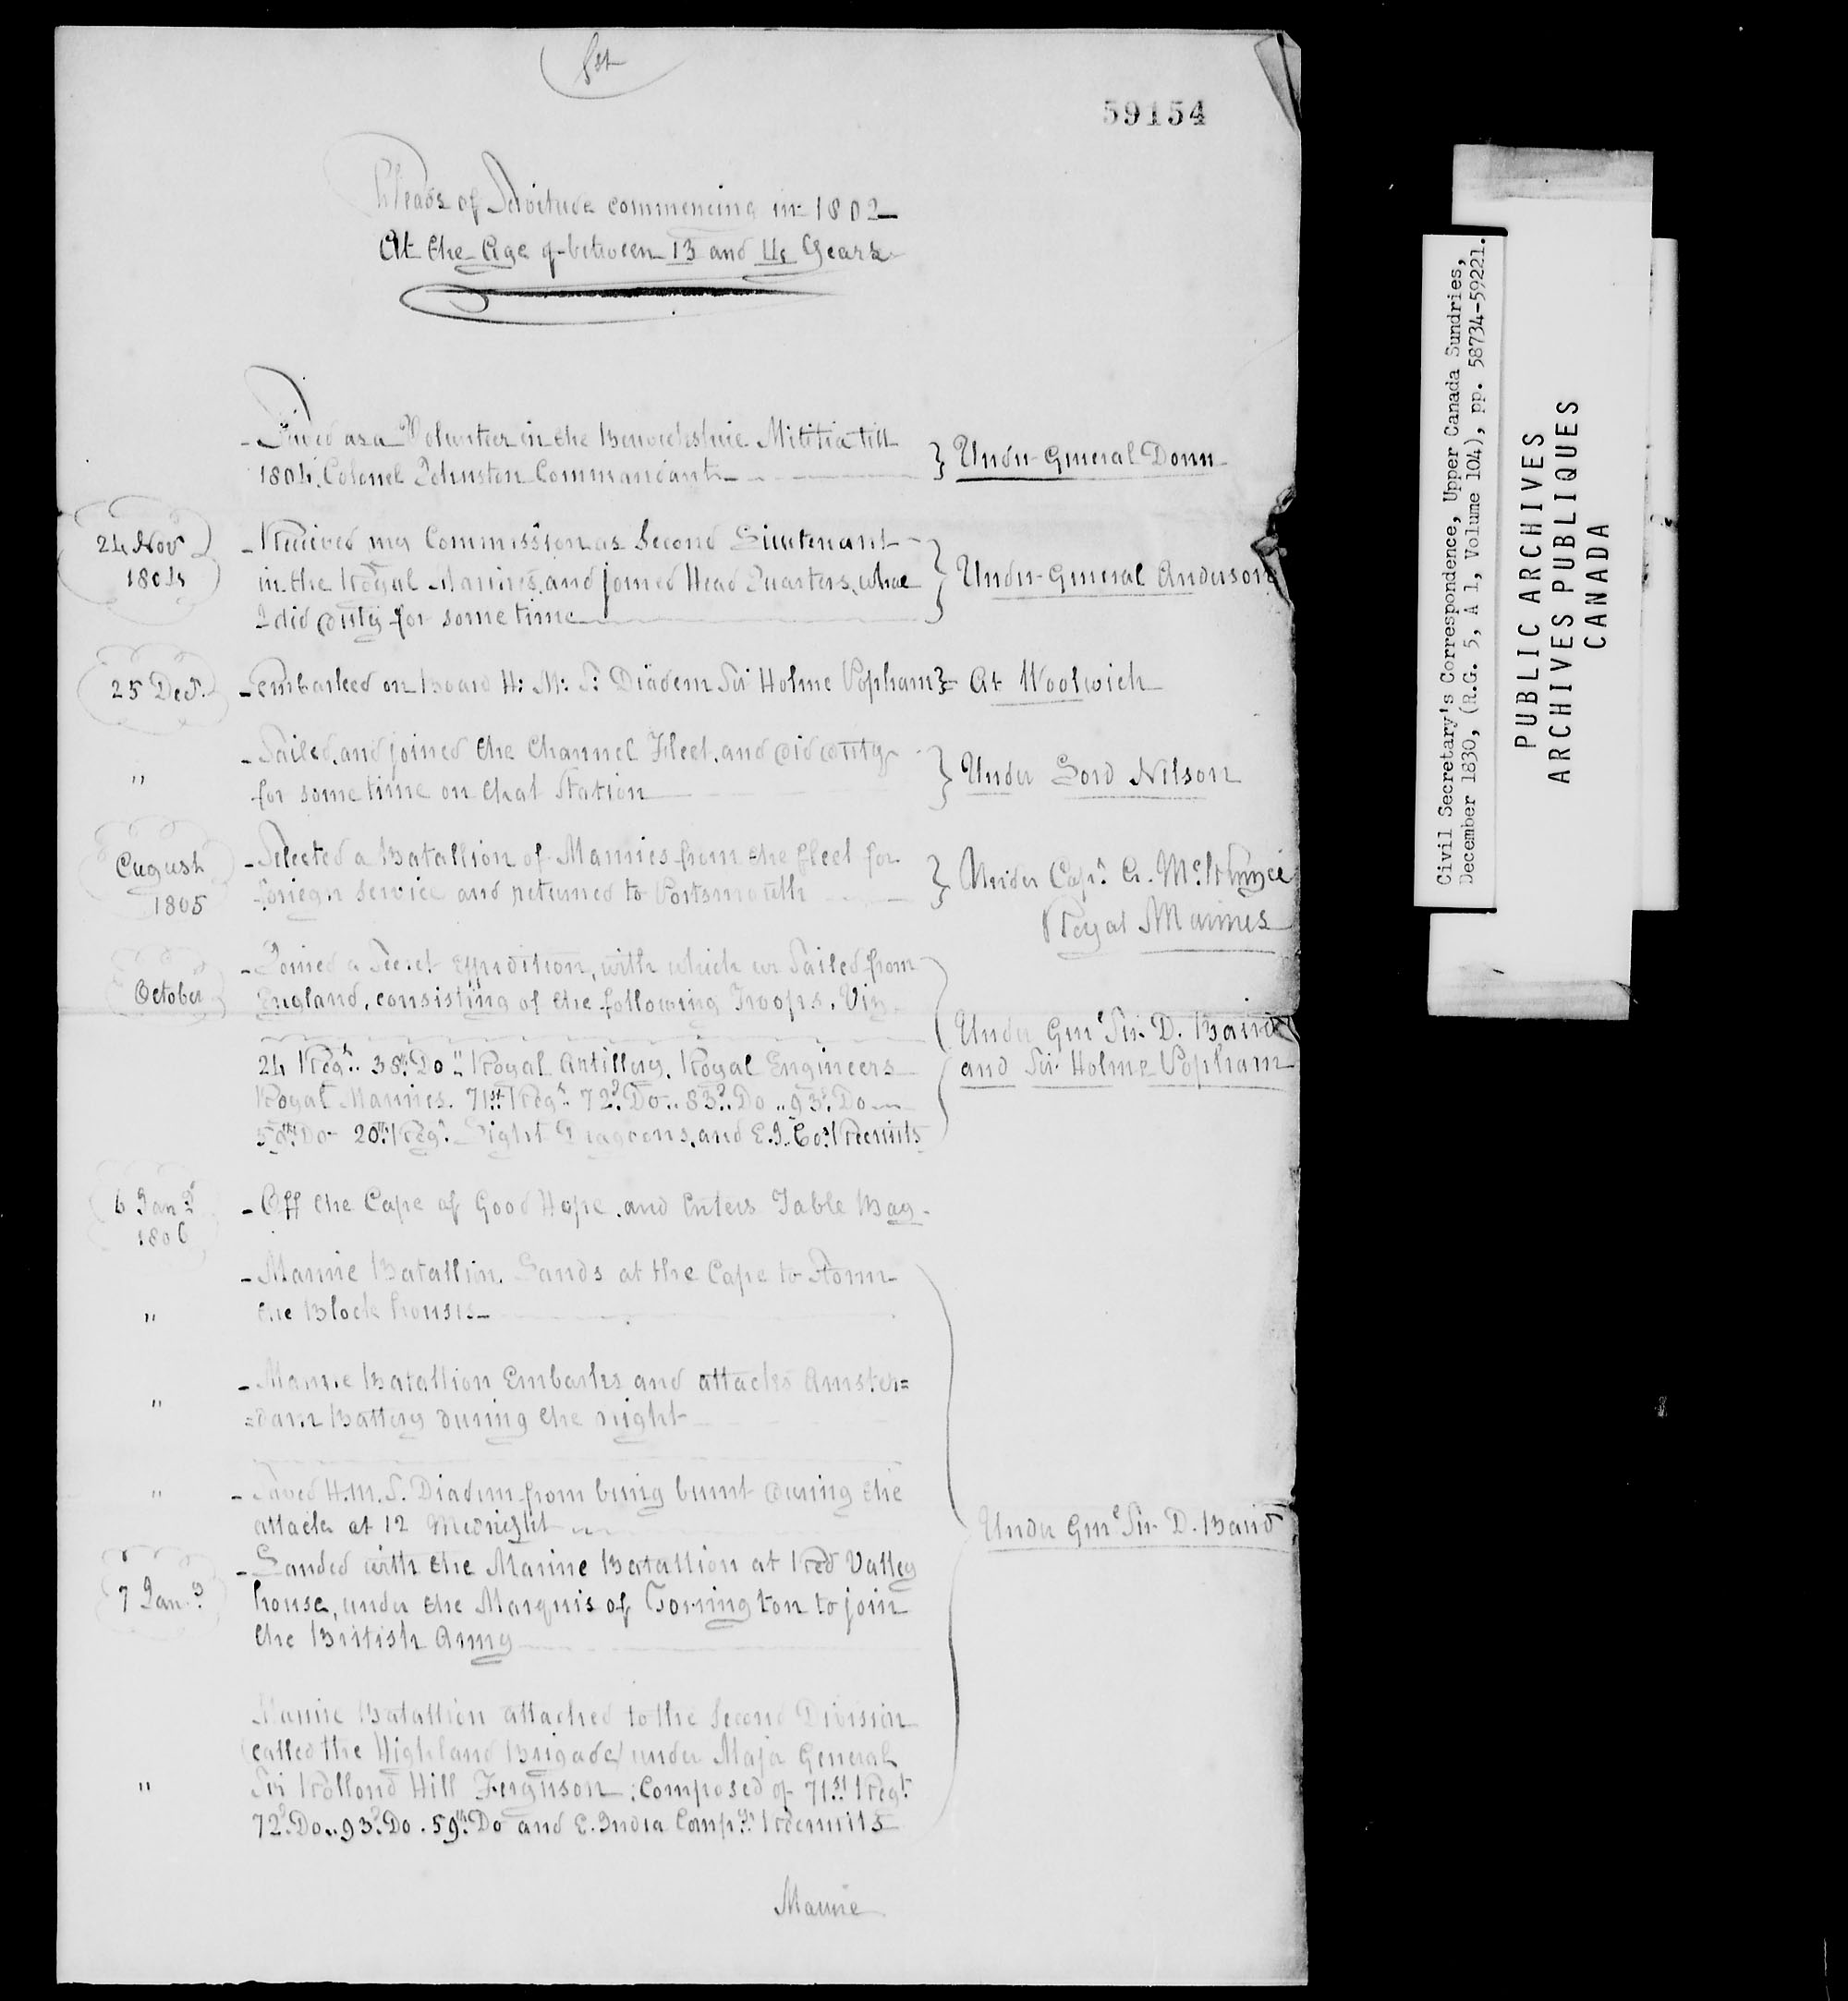 1st
59154
Heads of Servitude commencing in 1802
At the Age of between 13 and 14 Years
- Served as a Volunteer in the Berwickshire Militia till } Under General Donn
1804, Colonel Johnston Commandant
24 Nov 1804 - Received my Commission as Second Lieutenant
in the Royal Marines, and joined Head Quarters, whae } Under General Anderson
I did duty for some time
25 Decr. - embarked on Board H: M: S: Diadem Sir Holme Popham } At Woolwich
- Sailed, and joined the Channel Fleet, and did duty
" for some time on that Station } Under Lord Nelson
August 1805 - Selected a Batallion of Marines from the fleet for } Under Capn. A. McKenzie
foriegn Service and returned to Portsmouth
Royal Marines
October - Joined a Secret Expedition, with which we Sailed from
England, consisting of the following Troops. Viz.
24 Regt. 38th. Do " Royal Artillery, Royal Engineers
Royal Marines. 71st Regt. 72d. Do .. 83d. Do .. 93d. Do
59th. Do - 20th. Regt. Light Dragoons, and E.I. Cos. Recruits
Under Genl Sir D. Baird
and Sir Holme Popham
6 Jany 1806 - Off the Cape of Good Hope, and Enters Table Bay -
- Marine Batallion, Lands at the Cape to Storm
" the Block houses
- Marine Batallion Embarks and attacks Amster=
" =dam Battery during the night
" - Saved H.M.S. Diadem from being burnt during the
attack at 12 Midnight
Under Genl Sir D. Baird
7 Jany - Landed with the Marine Batallion at Red Valley
house, under the Marquis of Torrington to join
the British Army
Marine Batallion attached to the Second Division
(called the Highland Brigade) under Major General
" Sir Rollond Hill Ferguson: Composed of 71st. Regt
72d. Do .. 93d. Do . 59th. Do and E. India Compys. Recruits
Marine
Civil Secretary's Correspondence, Upper Canada Sundries,
December 1830, (R.G. 5, A 1, Volume 104), pp. 58734-59221.
PUBLIC ARCHIVES
ARCHIVES PUBLIQUES
CANADA